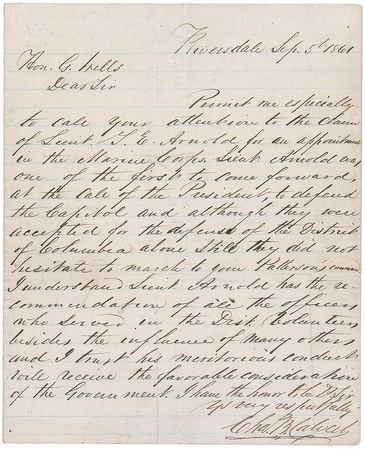 Riversdale Sep. 5th 1861
Hon. G. Wells
Dear Sir
Permit me especially
to call your attention to the claim
of Lieut. T. E. Arnold for an appointment
in the Marine Corps. Lieut Arnold was
one of the first to come forward
at the call of the President, to defend
the Capitol and although they were
accepted for the defense of the District
of Columbia alone still they did not
hesitate to march to join Patterson's command
I understand Lieut Arnold has the re-
commendation of all the officers
who served in the Dist. Volunteers
besides the influence of many others
and I trust his meritorious conduct
will receive the favorable consideration
of the Government. I have the honor to be Dr Sir
Yrs very respectfully
Chas B Calvert